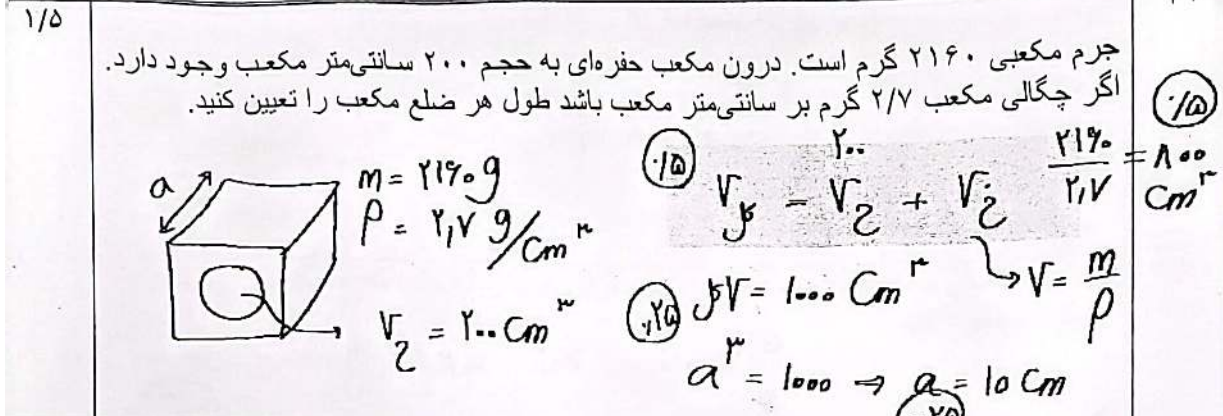 ۱/۵
جرم مکعبی ۲۱۶۰ گرم است. درون مکعب حفره‌ای به حجم ۲۰۰ سانتی‌متر مکعب وجود دارد.
اگر چگالی مکعب ۲/۷ گرم بر سانتی‌متر مکعب باشد طول هر ضلع مکعب را تعیین کنید.
a
m = ۲۱۶۰ g
ρ = ۲,۷ g/cm³
V ح = ۲۰۰ cm³
۰/۵
۲۰۰
V کل = V ح + V خ
۲۱۶۰ / ۲,۷ = ۸۰۰ cm³
۰/۵
V = m / ρ
۰,۲۵
V کل = ۱۰۰۰ cm³
a³ = ۱۰۰۰ ⇒ a = ۱۰ cm